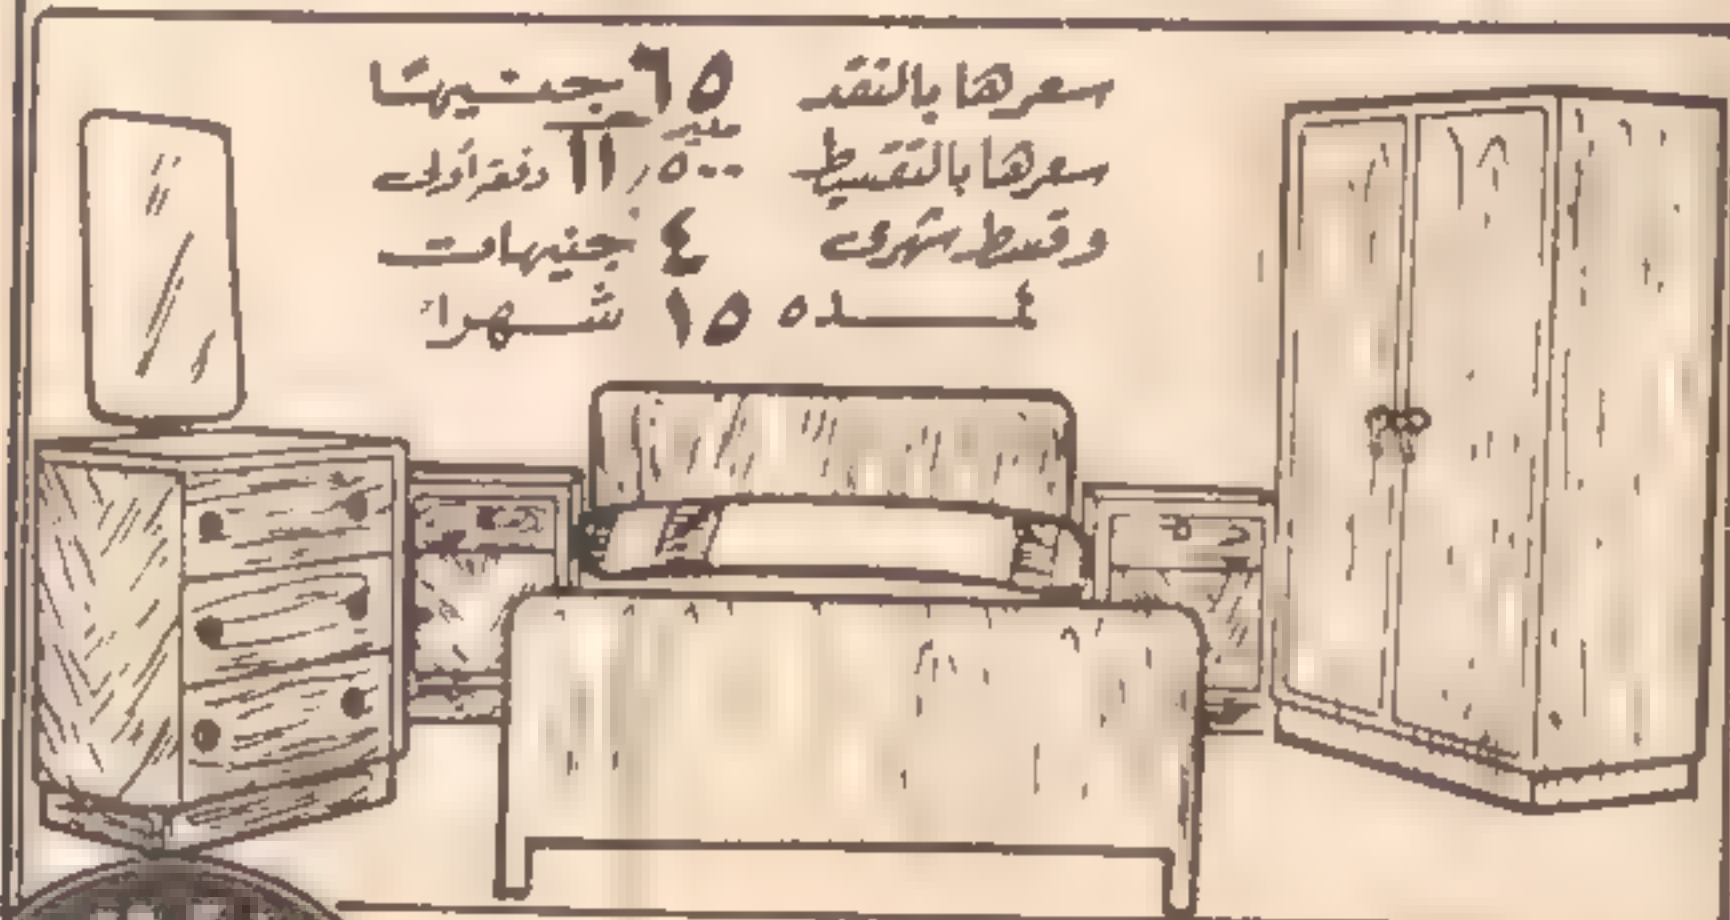 سعرها بالنقد ٦٥ جنيها
سعرها بالتقسيط ١١٫٥٠٠ مليم دفعة أولى
وقسط شهرى ٤ جنيهات
لمده ١٥ شهراً